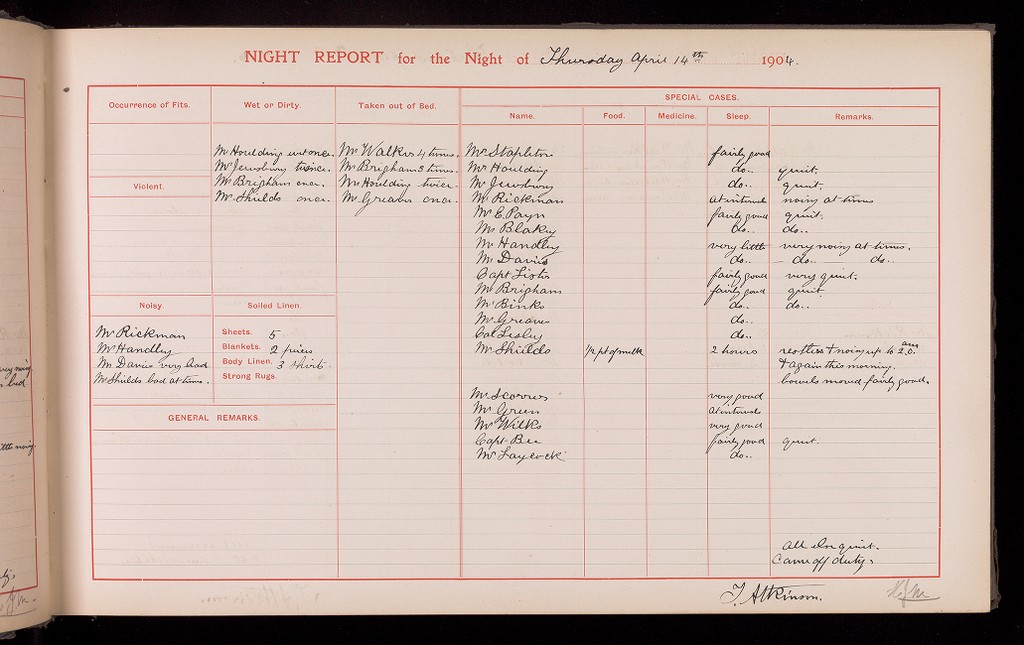 NIGHT REPORT for the Night of Thursday April 14th 1904.
Occurrence of Fits.
Wet or Dirty.
Taken out of Bed.
SPECIAL CASES.
Name.
Food.
Medicine.
Sleep.
Remarks.
Mr Houlding wet once.
Mr Jewsbury twice.
Mr Brigham once.
Mr Shields once.
Mr Walker 4 times.
Mr Brigham 3 times.
Mr Houlding twice.
Mr Greaves once.
Violent.
Mr Stapleton fairly good
Mr Houlding do.. quiet.
Mr Jewsbury do.. quiet.
Mr Rickman at intervals noisy at times
Mr E. Payn fairly good quiet.
Mr Blakey do.. do..
Mr Handley very little very noisy at times.
Mr Davies do.. - do.. do..
Capt Lister fairly good very quiet.
Mr Brigham fairly good quiet.
Mr Binks do.. do..
Mr Greaves do..
Col Lesley do..
Mr Shields 1/2 pt of milk 2 hours restless & noisy up to 2 am o.
& again this morning.
bowels moved fairly good.
Mr Scorrer very good
Mr Green at intervals
Mr Wilks very good
Capt Bee fairly good quiet.
Mr Laycock do..
Noisy.
Mr Rickman
Mr Handley
Mr Davies very bad
Mr Shields bad at times.
Soiled Linen.
Sheets. 5
Blankets. 2 pieces
Body Linen. 3 shirts
Strong Rugs.
GENERAL REMARKS.
All else quiet.
Came off duty.
T. Atkinson.